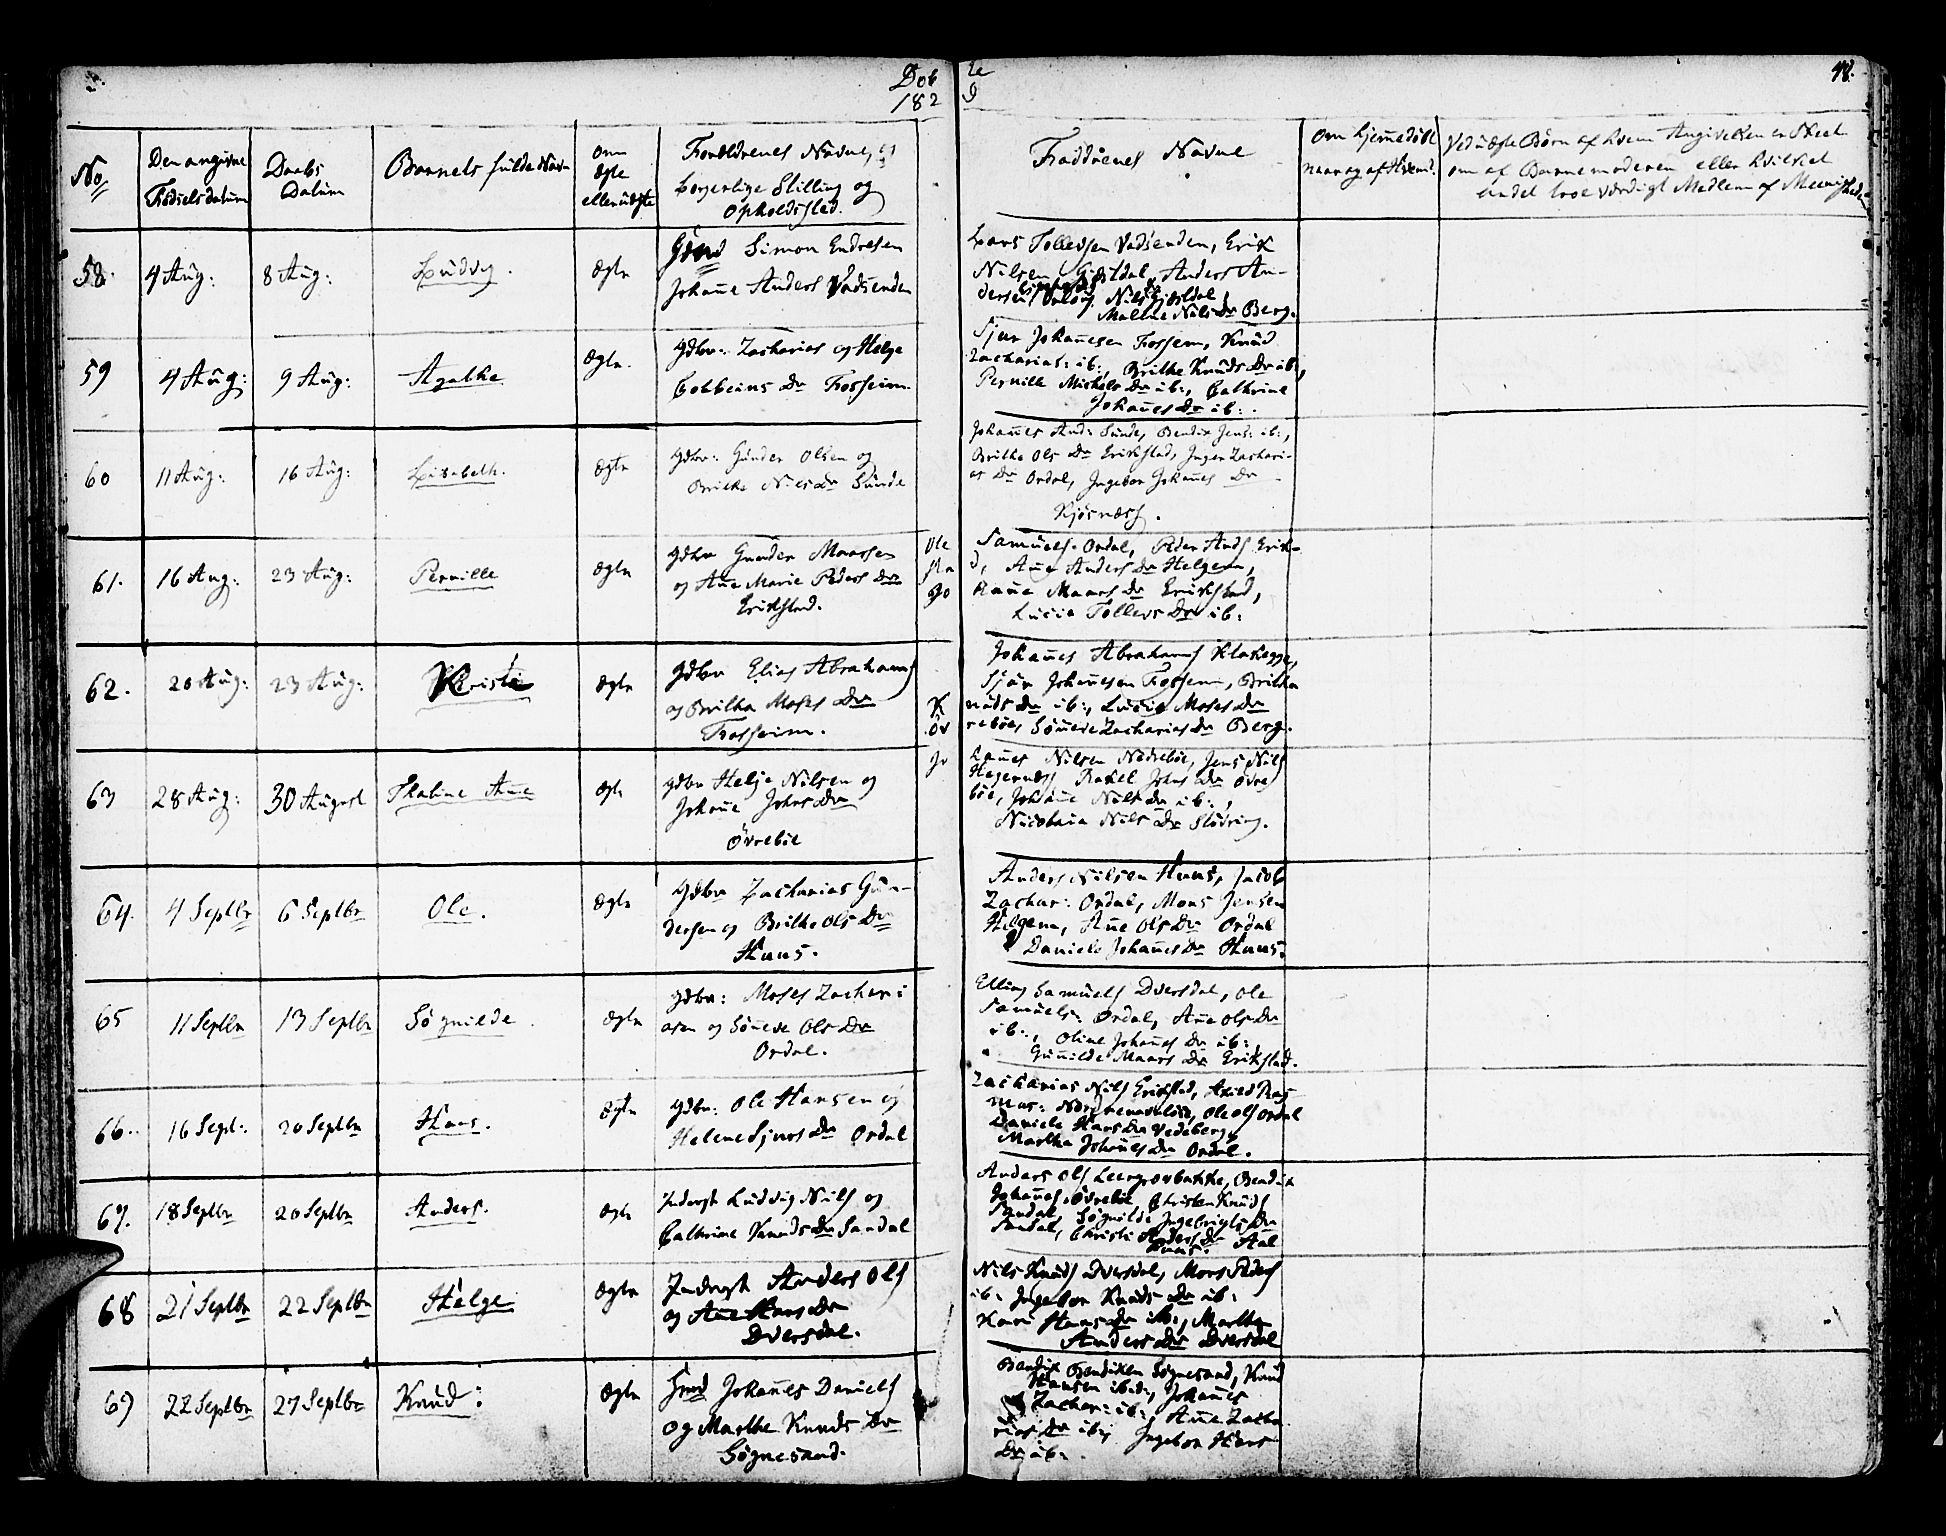 Døbte
1829
48.
No.
Den angivne
Fødselsdatum
Daabs
Datum
Barnets fulde Navn
Om
Ægte
eller uægte
Forældrenes Navne,
borgerlige Stilling og
Opholdssted.
Faddrenes Navne
Om hjemmedøbt
naar og af Hvem?
Ved uægte Børn af hvem Angivelsen er Skeet
om af Barnemoderen eller hvilket
andet troeværdigt Medlem af Menigheden
58.
4 Aug:
8 Aug:
Ludvig.
Ægte
Simon Endresen
Johanne Anders Vadsenden
Lars Tollevsen Vadsenden, Erik
Nilsen Gjesdal, Anders An-
dersen
Malene Nils Dr Berg.
59
4 Aug:
9 Aug:
Agathe
Ægte.
Gdbr: Zacharias og Helge
Dr Fossheim.
Sjur Johannesen Fossem, Knud
Zacharias: ib:, Brithe Knuds Dr ib:,
Pernille Michels Dr ib:, Cathrine
Johannes Dr ib:.
60
11 Aug:
16 Aug:
Lisabeth.
Ægte
Gdbr: Gunder Olsen og
Brithe Nils Dr Sunde
Johannes And: Sunde, Bendix Jens: ib:,
Brithe Ols Dr Erikstad, Inger Zachari-
as Dr Ordal, Ingebor Johannes Dr
Kjøsnæs.
61.
16 Aug:
23 Aug:
Pernille
Ægte
Gdbr Gunder Maarsen
og Ane Marie Peders Dr
Erikstad.
Ole Samuels. Ordal, Peder Ands Erik-
stad, Ane Anders Dr Helgem,
Maars Dr Erikstad,
Lucia Tollevs Dr ib:
62.
20 Aug:
23 Aug:
Kristi
Ægte
Gdbr Elias Abrahams
og Britha Moses Dr
Fossheim.
Johannes Abrahams Klakegge,
Sjur Johannesen Fossem, Britha
Knuds Dr ib:, Lucie Moses Dr
Øvrebøe, Sønneve Zacharias Dr Berg.
63
28 Aug:
30 August
Thabine Ane
Ægte
Gdbr Helje Nilsen og
Johanne Johns Dr
Øvrebøe
Johannes Nilsen Nedrebøe, Jens Nils
Hegernæs, Rakel Johns Dr Øvre
bøe, Johanne Nils Dr ib:,
Nicolaia Nils Dr Slødring.
64.
4 Septbr
6 Septbr
Ole.
Ægte
Gdbr Zacharias Gun-
dersen og Brithe Ols Dr
Huus.
Anders Nilsen Huus, Jacob
Zachar: Ordal, Mons Jensen
Helgem, Ane Ols Dr Ordal
Daniele Johannes Dr Huus.
65
11 Septbr
13 Septbr
Søgnilde.
Ægte
Gdbr: Moses Zachari
asen og Sønneve Ols Dr
Ordal.
Elling Samuels Dversdal, Ole
Samuels: Ordal, Ane Ols Dr
ib:, Oline Johannes Dr ib:,
Gunnilde Maars Dr Erikstad.
66.
16 Sept:
20 Septbr
Hans.
Ægte
Gdbr: Ole Hansen og
Helene Sjurs Dr Ordal
Zacharias Nils Erikstad,
Ole Ols Ordal
Daniele Hans Dr Vedeberg,
Marthe Johannes Dr Ordal.
67.
18 Septbr
20 Septbr
Anders.
Ægte
Inderst Ludvig Nils og
Cathrine Knuds Dr Sandal
Anders Ols Leergrovbakke, Bendix
Johannes. Øvrebøe, Christen Knuds
Sandal, Søgnilde Ingebrigts Dr
Sandal, Christi Anders Dr Aal
Huus.
68
21 Septbr
22 Septbr
Helge
Ægte
Inderst Anders Ols
og Ane Hans Dr
Dversdal.
Nils Knuds Dversdal, Mons Peders
ib: Ingebor Knuds Dr ib:
Kari Hans Dr ib:, Marthe
Anders Dr Dversdal
69
22 Septbr
27 Septbr
Knud:
Ægte
Johannes Daniels
og Marthe Knuds Dr
Søgnesand.
Bendix Bendixen Søgnesand, Knud
Hansen ibid:, Johannes
Zachar: ib:, Ane Zacha
rias Dr ib:, Ingebor Hans
Dr ib: